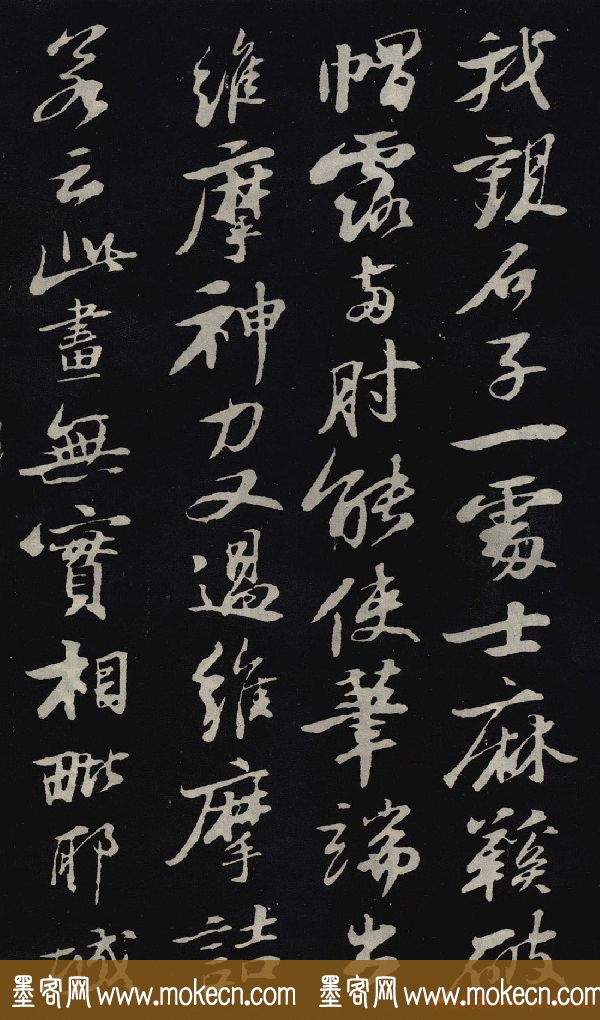 我觀石子一處士麻鞵破
帽露兩肘能使筆端出
維摩神力又過維摩詰
若云此畫無實相毗耶城
墨客网 www.mokecn.com 墨客网 www.mokecn.com